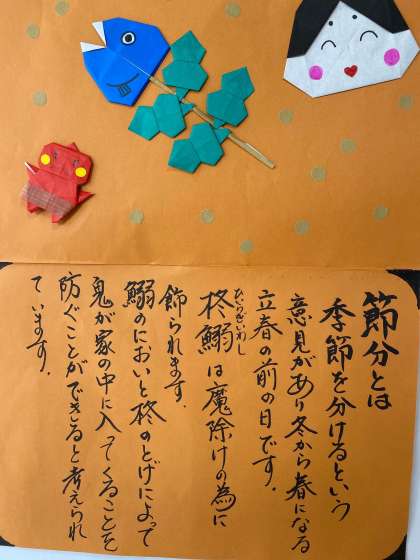 節分とは
季節を分けるという
意見があり冬から春になる
立春の前の日です。
柊鰯は魔除けの為に
ひいらぎいわし
飾られます。
鰯のにおいと柊のとげによって
鬼が家の中に入ってくることを
防ぐことができると考えられ
ています。